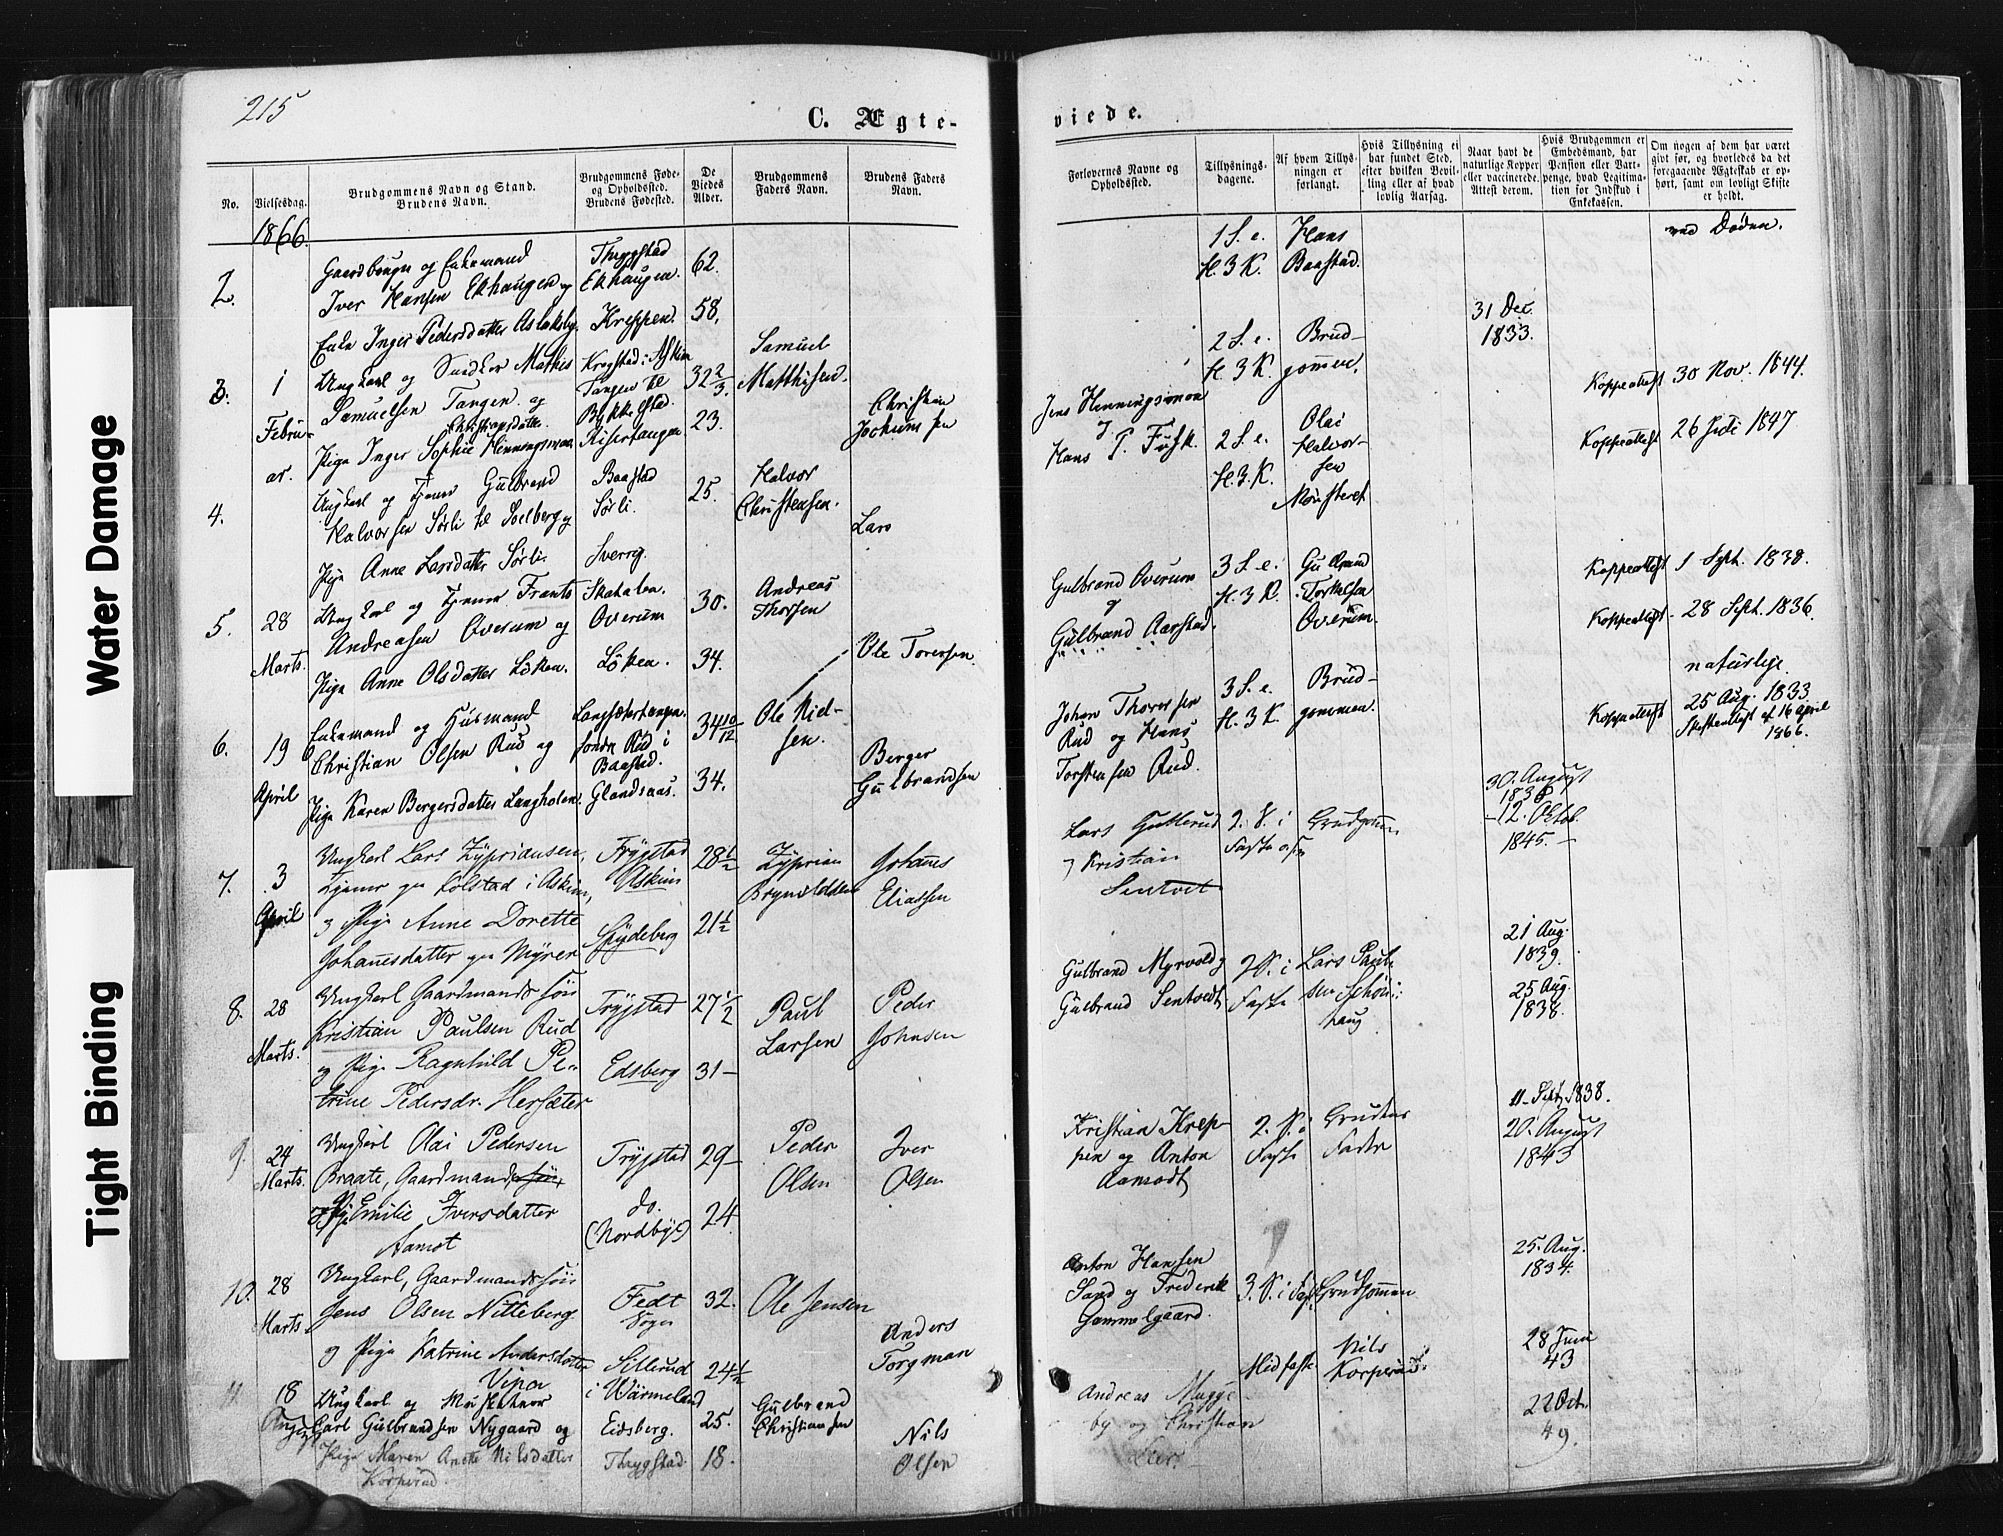 Water Damage
Tight Binding
215
C. Ægte-
viede.
No.
Vielsesdag.
Brudgommens Navn og Stand.
Brudens Navn.
Brudgommens Føde-
og Opholdssted.
Brudens Fødested.
De
Viedes
Alder.
Brudgommens
Faders Navn.
Brudens Faders
Navn.
Forlovernes Navne og
Opholdssted.
Tillysnings-
dagene.
Af hvem Tillys-
ningen er
forlangt.
Hvis Tillysning ei
har fundet Sted,
efter hvilken Bevil-
ling eller af hvad
lovlig Aarsag.
Naar havt de
naturlige Kopper
eller vaccinerede.
Attest derom.
Hvis Brudgommen er
Embedsmand, har
Pension eller Vart-
penge, hvad Legitima-
tion for Indskud i
Enkekassen.
Om nogen af dem har været
givt før, og hvorledes da det
foregaaende Ægteskab er op-
hørt, samt om lovligt Skifte
er holdt.
1866.
2.
Gaardbruger og Enkemand
Iver Hansen Ekhaugen og
Enke Inger Pedersdatter Aslaksby
Thrygstad
Ekhaugen.
Kreppen.
62.
58.
1 S. e.
H. 3 K.
Hans
Baastad.
ved Døden.
3.
1
Febru-
ar.
Ungkarl og Snedker Mathis
Samuelsen Tangen og
Christiansdatter
Pige Inger Sophie Henningsmoen
Krogstad i Askim
Tangen til
Riserhaugen
32 2/3.
23.
Samuel
Matthisen.
Christian
Jochumsen
Jens Henningsmoen
og
Hans P. Fusk.
2 S. e.
H. 3 K.
Brud-
gommen.
31 Dec.
1833.
Koppeattest 30 Nov. 1844.
4.
Ungkarl og Tjener Gulbrand
Halvorsen Sørli til Solberg og
Pige Anne Larsdatter Sørli.
Baastad
Sørli.
Sverrig.
25.
Halvor
Christensen.
Lars
2 S. e.
H. 3 K.
Olai
Halvor-
sen
Mønsteret
Koppeattest 26 Juli 1847
5.
28
Marts.
Ungkarl og Tjener Frants
Andreasen Overum og
Pige Anne Olsdatter Løken.
Skataben.
Overum
Løken.
30.
34.
Andreas
Thorsen
Ole Toresen.
Gulbrand Overum
og
Gulbrand Aarstad.
3 S. e.
H. 3 K.
Gulbrand
Torkelsen
Overum.
Koppeattest 1 Sept. 1838.
Koppeattest 28 Sept. 1836.
6.
19
April
Enkemand og Husmand
Christian Olsen Rud og
Pige Karen Bergersdatter Langholen.
Langsæterhaugen.
søndre Rud i
Baastad.
Glandsaas.
34 10/12.
34.
Ole Niel-
sen.
Berger
Gulbrandsen
Johan Thoresen
Rud og Hans
Torstensen Rud.
3 S. e.
H. 3 K.
Brud-
gommen.
naturlige
Koppeattest 25 Aug. 1833
Skifteattest af 16 April
1866.
7.
3
April
Ungkarl Lars Zypriansen,
Tjener paa Kolstad i Askim,
og Pige Anne Dorette
Johannesdatter paa Myrer
Trygstad
Askim
Spydeberg
28 1/2
21 1/2
Zyprian
Brynildsen
Johannes
Eliassen
Lars Gutterud
og Kristian
Sentvet
2. S. i
Faste
Brudgommen
30. August
1836
12. Oktob.
1845.
8.
28
Marts.
Ungkarl Gaardmandssøn
Kristian Paulsen Rud
og Pige Ragnhild Pe-
trine Pedersdr. Hersæter
Trygstad
Edsberg
27 1/2
31
Paul
Larsen
Peder
Johnsen
Gulbrand Myrvold og
Gulbrand Sentvedt
2 S. i
Faste
Lars Paul-
sen
haug
21 Aug.
1839.
25 Aug.
1838.
9.
24
Marts.
Ungkarl Olai Pedersen
Braate, Gaardmandssøn,
og Pige Emilie Iversdatter
Aamot
Trygstad
do.
(Nordbye)
29
24
Peder
Olsen
Iver
Olsen
Kristian Krep-
pen og Anton
Aamodt
2. S. i
Faste
Brudens
Fader
11 Sept. 1838.
20. August
1843
10.
28
Marts
Ungkarl, Gaardmandssøn
Jens Olsen Nitteberg
og Pige Katrine Andersdatter
Vipa
Fedt
Sogn
Sillerud
i Wärmeland
32.
24 1/2
Ole Jensen
Anders
Torgman
Anton Hansen
Sand og Frederik
Gammelgaard.
3. S. i Faste
Brudgommen
25. Aug.
1834.
28 Juni
43
11
18
August
Ungkarl og
Carl Gulbrandsen Nygaard og
Pige Maren Anette Nilsdatter
Korperud
Eidsberg.
Thrygstad
25.
18.
Gulbrand
Christiansen
Nils
Olsen
Andreas Mugge-
by og Christian
Lier.
Midfaste
Nils
Korperud
22 Oct.
49.